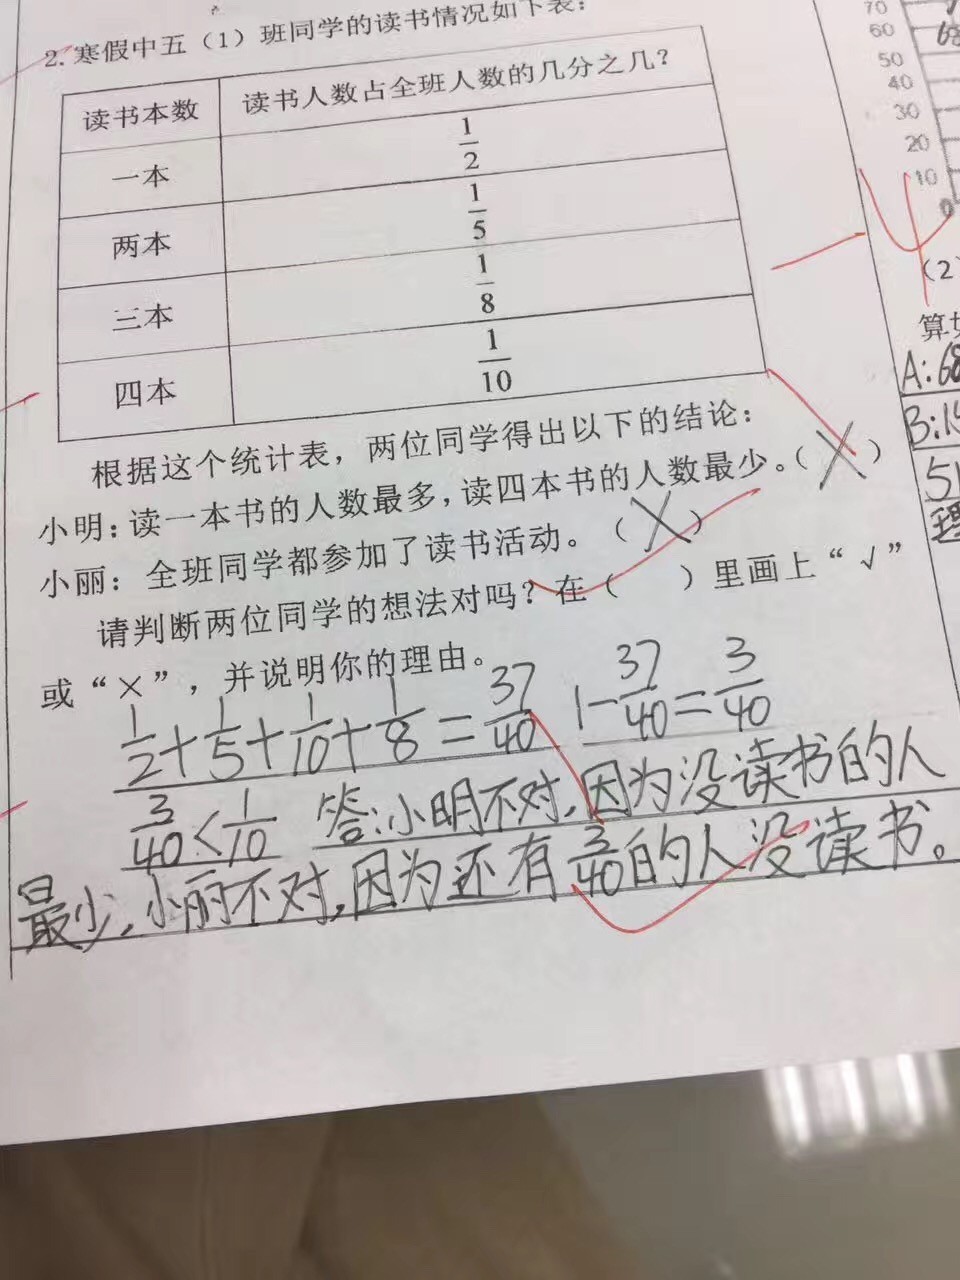 2.寒假中五（1）班同学的读书情况如下表：
读书本数 读书人数占全班人数的几分之几？
一本 1/2
两本 1/5
三本 1/8
四本 1/10
根据这个统计表，两位同学得出以下的结论：
小明：读一本书的人数最多，读四本书的人数最少。（×）
小丽：全班同学都参加了读书活动。（×）
请判断两位同学的想法对吗？在（ ）里画上“√”
或“×”，并说明你的理由。
1/2+1/5+1/10+1/8=37/40 1-37/40=3/40
3/40<1/10 答：小明不对，因为没读书的人
最少，小丽不对，因为还有3/40的人没读书。
70
60
50
40
30
20
10
0
（2）
A:68
B:
51